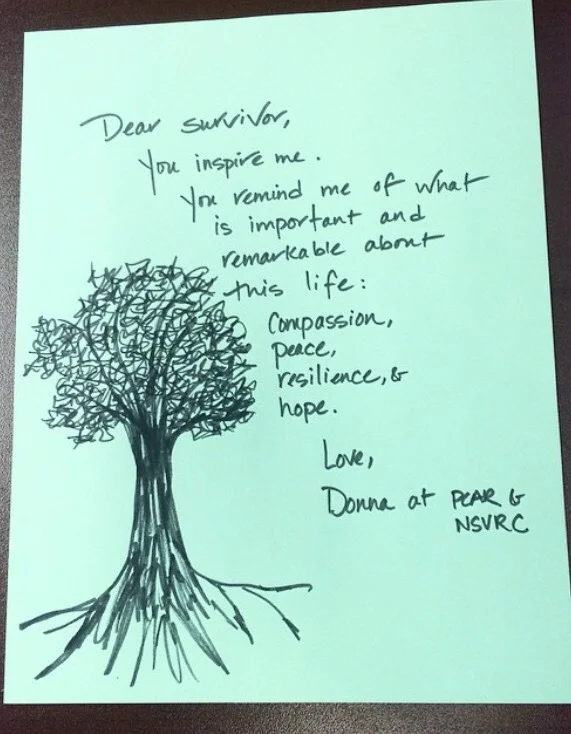 Dear survivor,
You inspire me.
You remind me of what
is important and
remarkable about
this life:
Compassion,
peace,
resilience, &
hope.
Love,
Donna at PCAR &
NSVRC